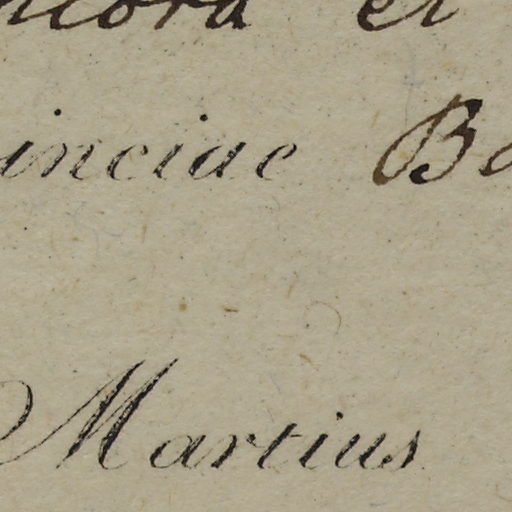 ncora et
inciae Ba
Martius